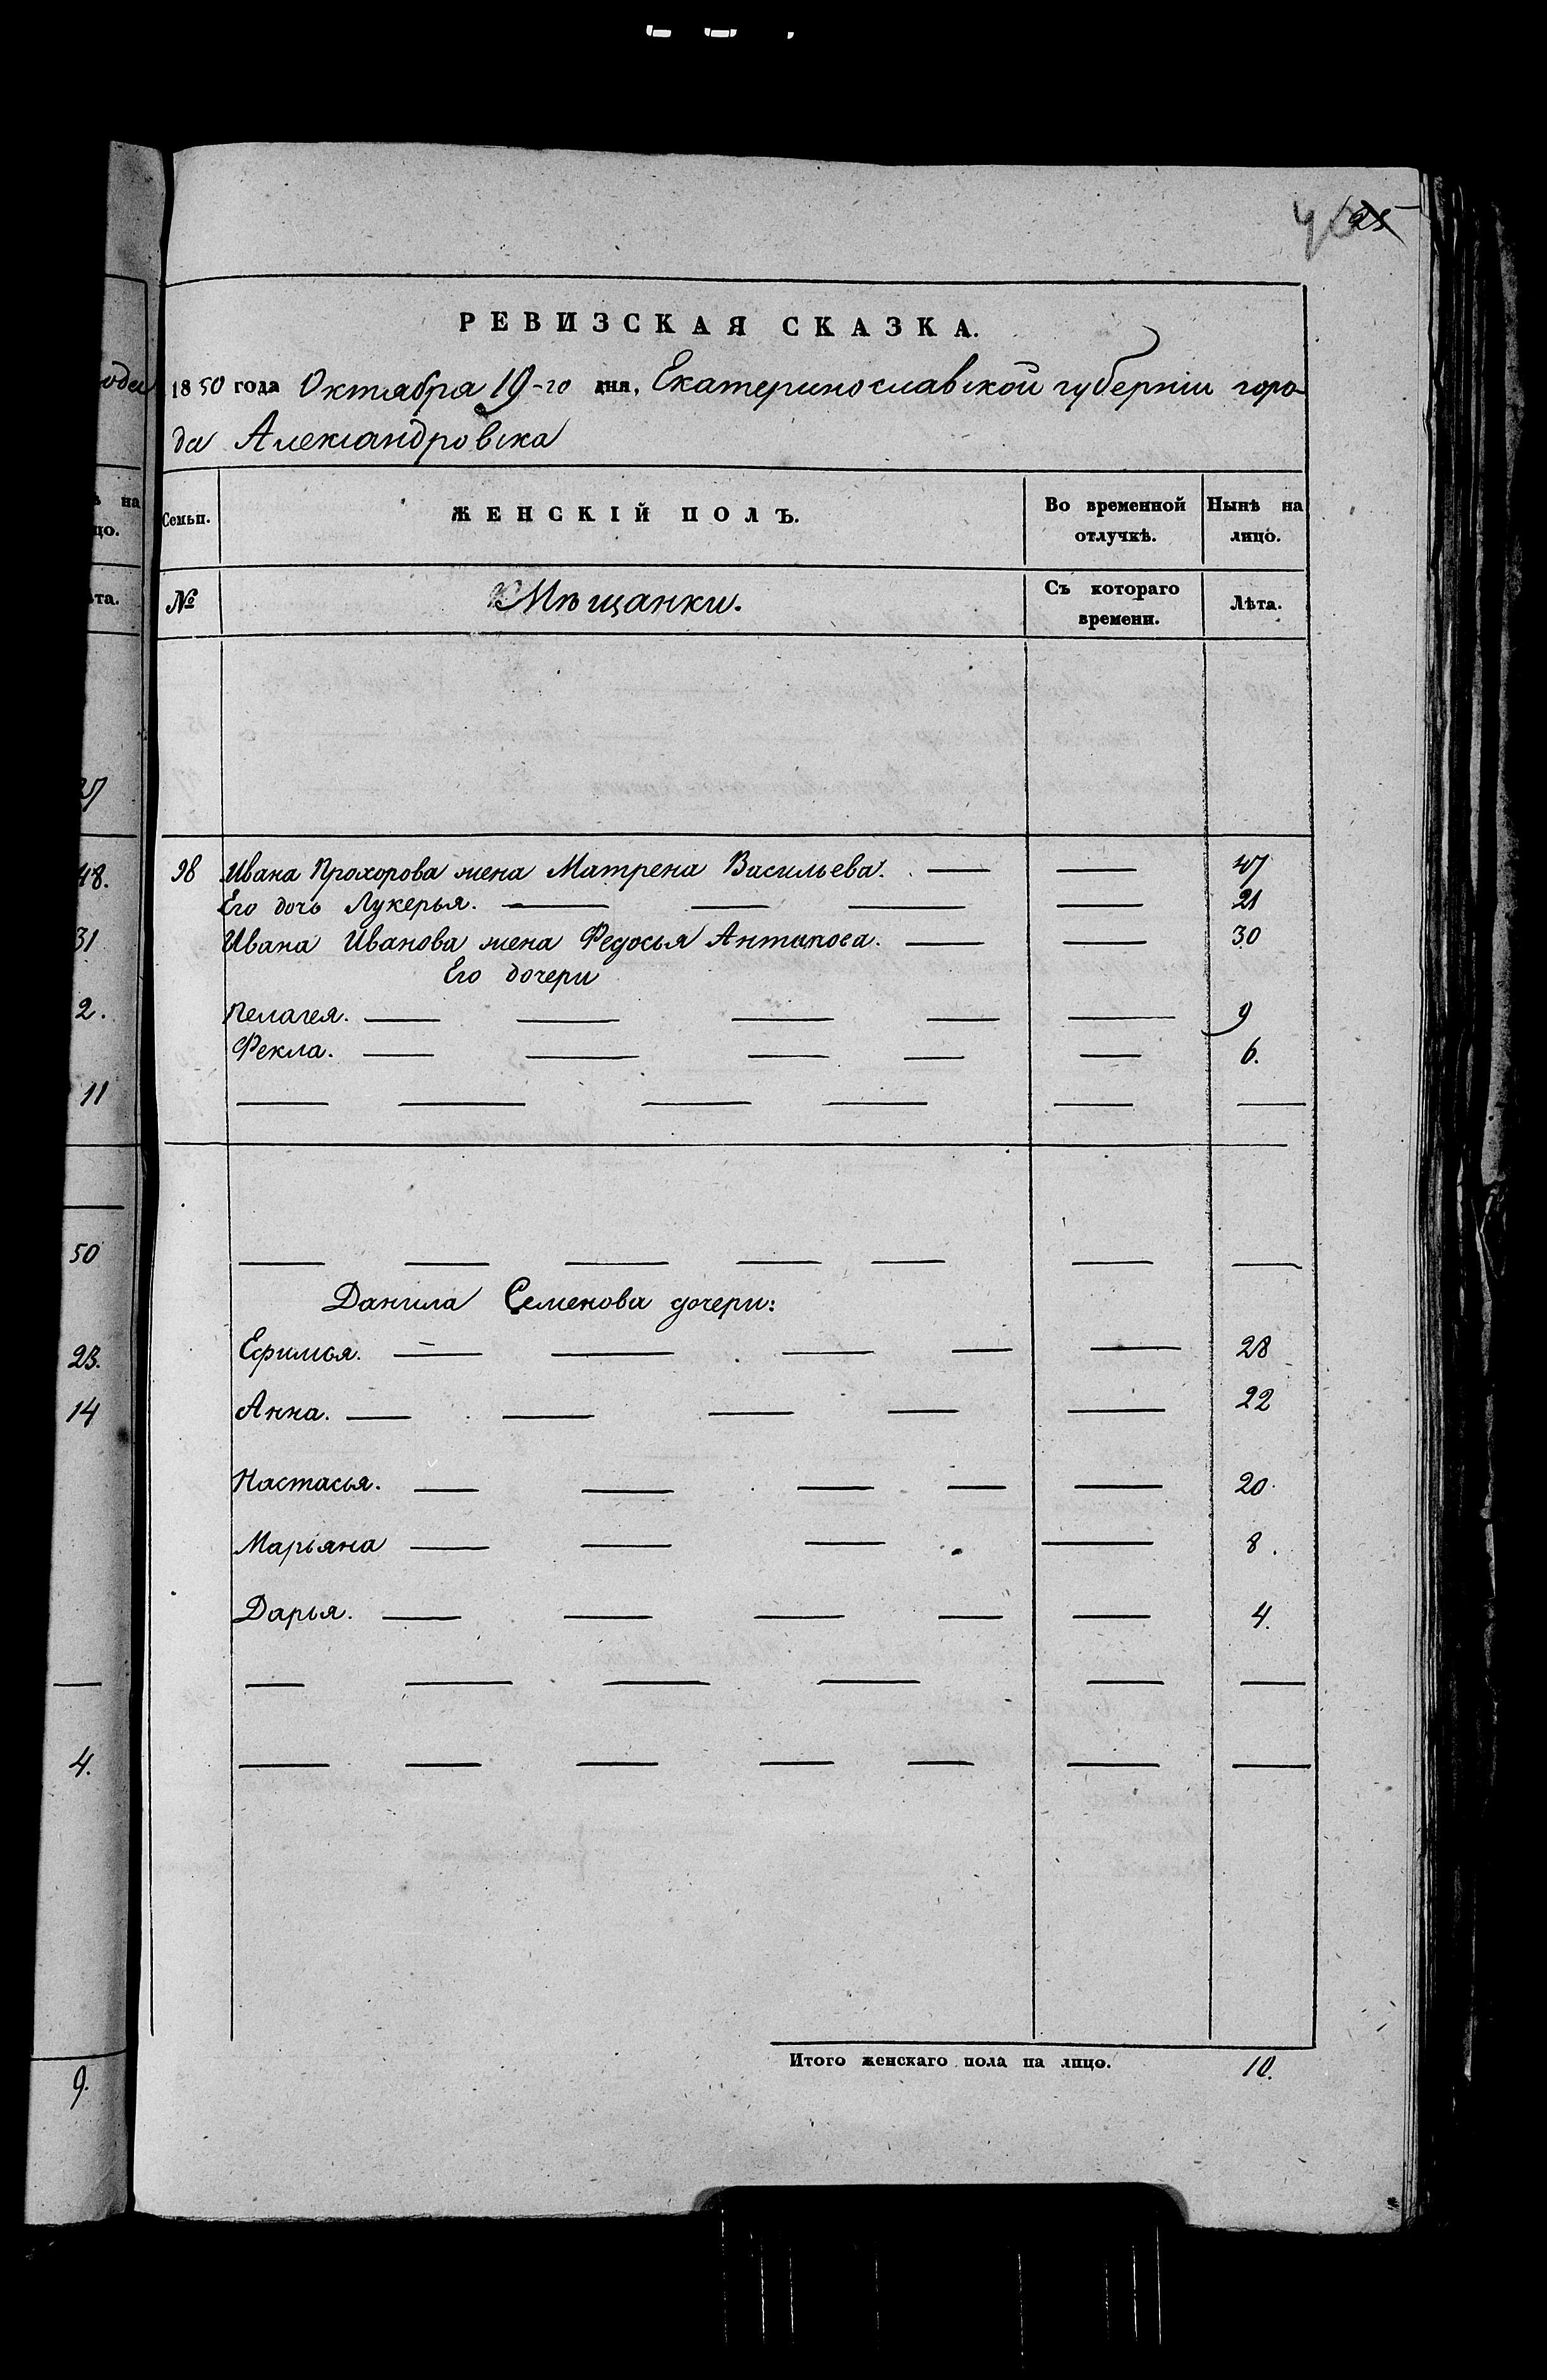 40 25
РЕВИЗСКАЯ СКАЗКА.
1850 года Октября 19-го дня, Екатеринославской губерніи горо-
да Александровска
Семьи. ЖЕНСКІЙ ПОЛЪ. Во временной отлучкѣ. Нынѣ на лицо.
№ Мѣщанки. Съ котораго времени. Лѣта.
98 Ивана Прохорова жена Матрена Васильева. — — 47
Его дочь Лукерья. — — — — 21
Ивана Иванова жена Федосья Антипова. — — 30
Его дочери
Пелагея. — — — — — 9
Фекла. — — — — — 6.
— — — — — —
— — — — — — —
Данила Семенова дочери:
Ефимья. — — — — — 28
Анна. — — — — — 22
Настасья. — — — — — 20.
Маріяна — — — — 8.
Дарья. — — — — — 4.
— — — — — —
— — — — — — —
Итого женскаго пола на лицо. 10.
ода
на
цо.
та.
48.
31
2.
11
50
23.
14
4.
9.